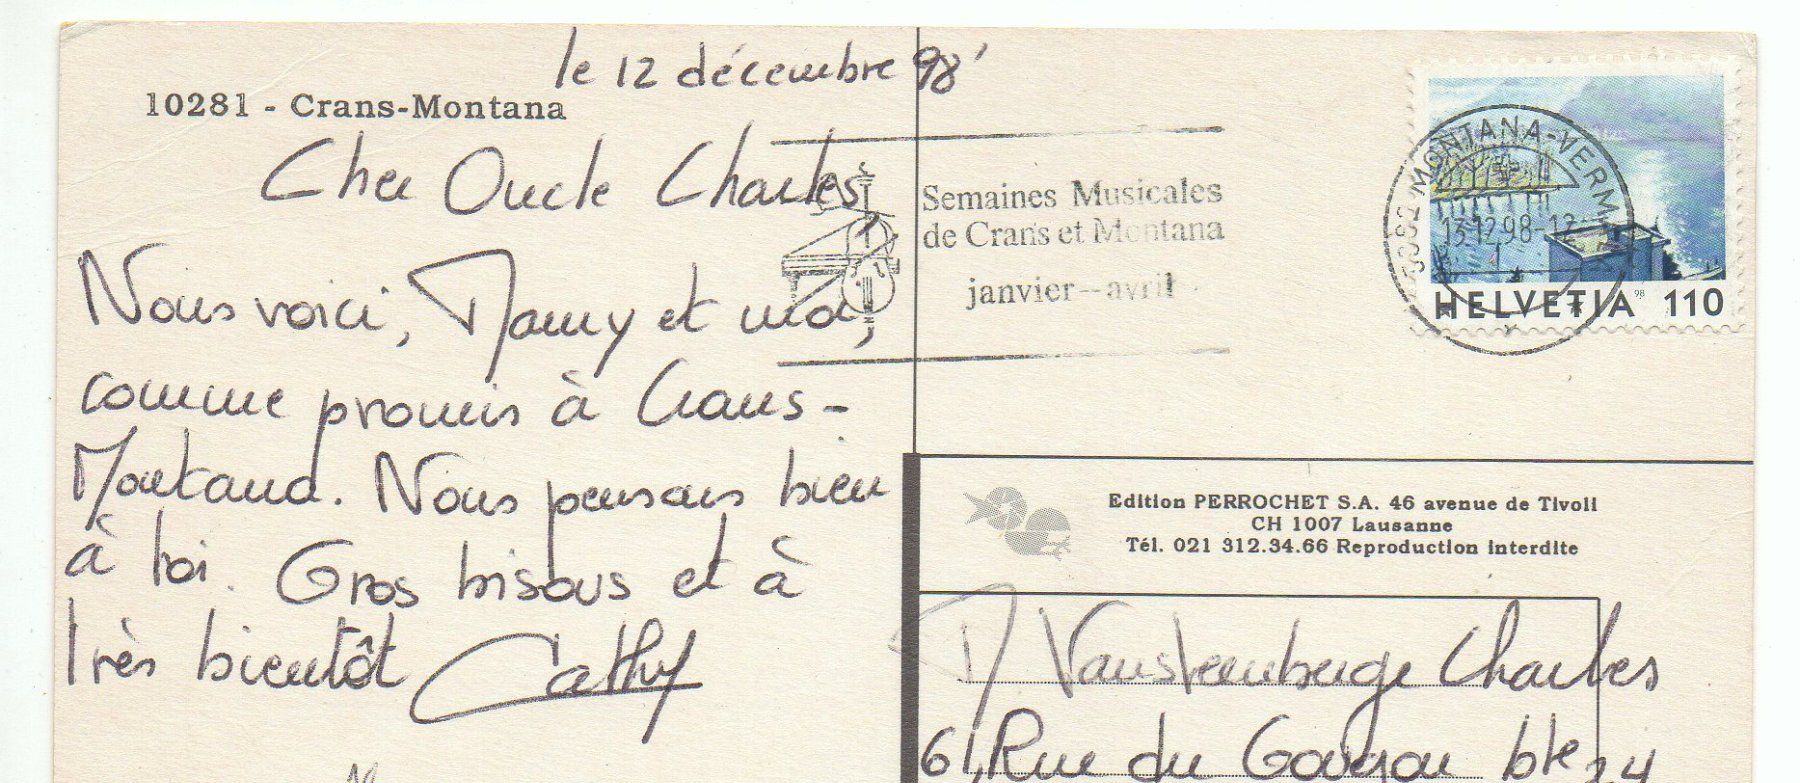 le 12 décembre 98'
10281 - Crans-Montana
Cher Oncle Charles,
Nous voici, Mamy et moi,
comme promis à Crans-
Montana. Nous pensons bien
à toi. Gros bisous et à
très bientôt Cathy
Semaines Musicales
de Crans et Montana
janvier - avril
MONTANA-VERM
13.12.98-12
HELVETIA 98 110
Edition PERROCHET S.A. 46 avenue de Tivoli
CH 1007 Lausanne
Tél. 021 312.34.66 Reproduction interdite
M Vansteenberge Charles
61, Rue du bte 24